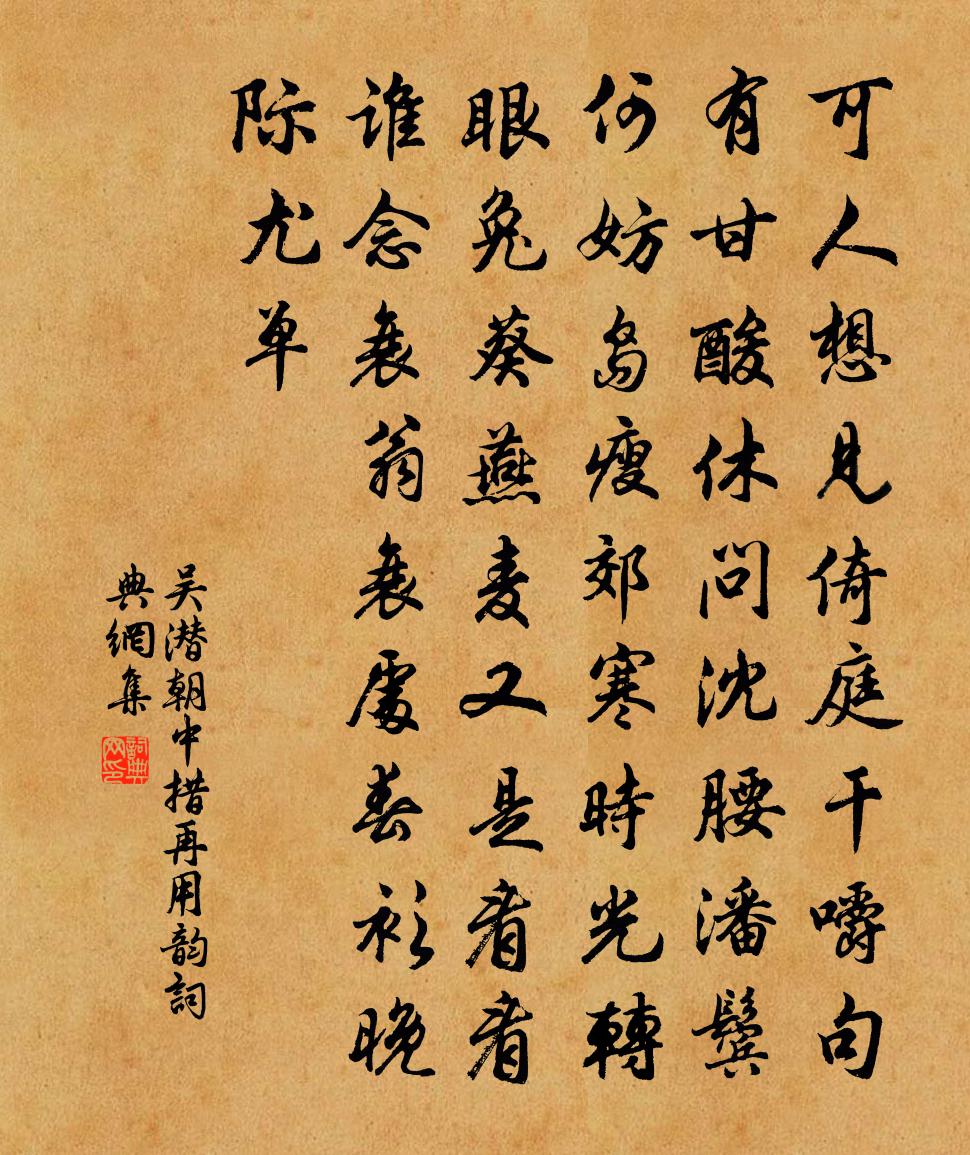 可人想見倚庭干嚼句
有甘酸休問沈腰潘鬢
何妨島瘦郊寒時光轉
眼兔葵燕麦又是看看
谁念衰翁衰處春衫晚
际尤单
吴潜朝中措再用韵詞
典網集
詞典网印